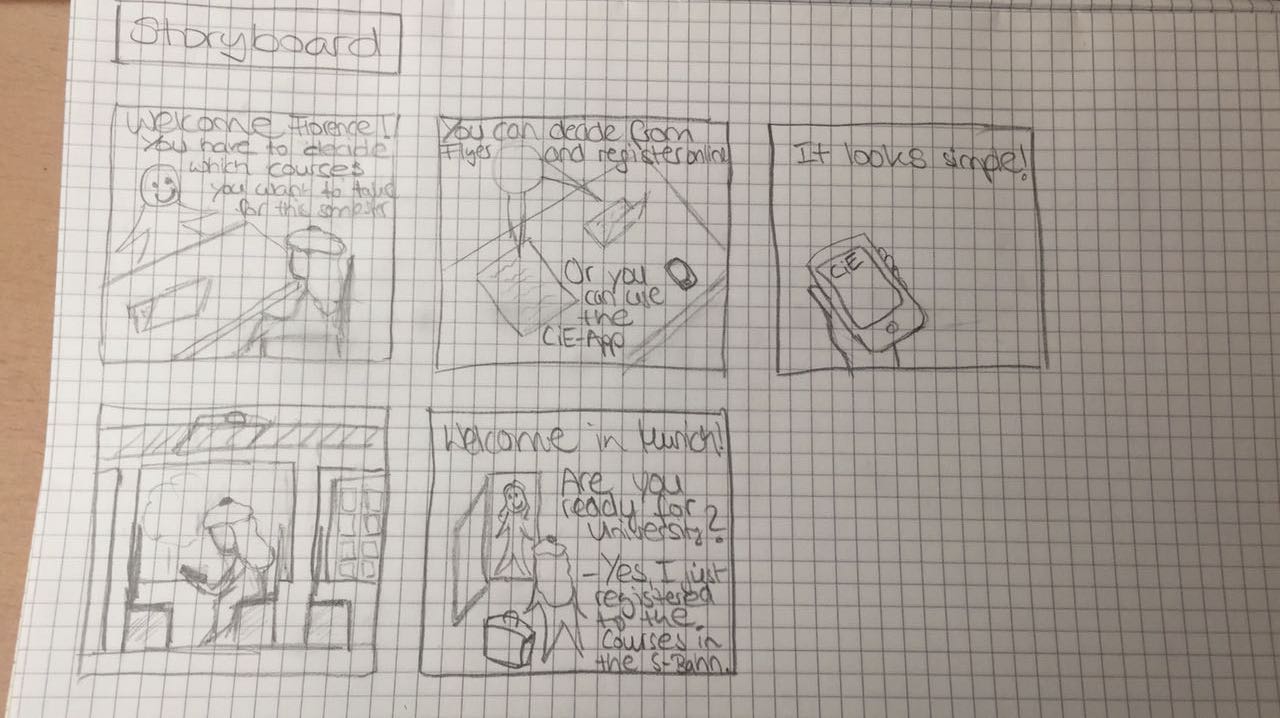 Storyboard
Welcome Florence!
You have to decide
which courses
you want to take
for this semester
You can decide from
Flyes and register online
Or you
can use
the
CiE-App
It looks simple!
CiE
Welcome in Munich!
Are you
ready for
University?
- Yes, I just
registered
to the
courses in
the S-Bahn.